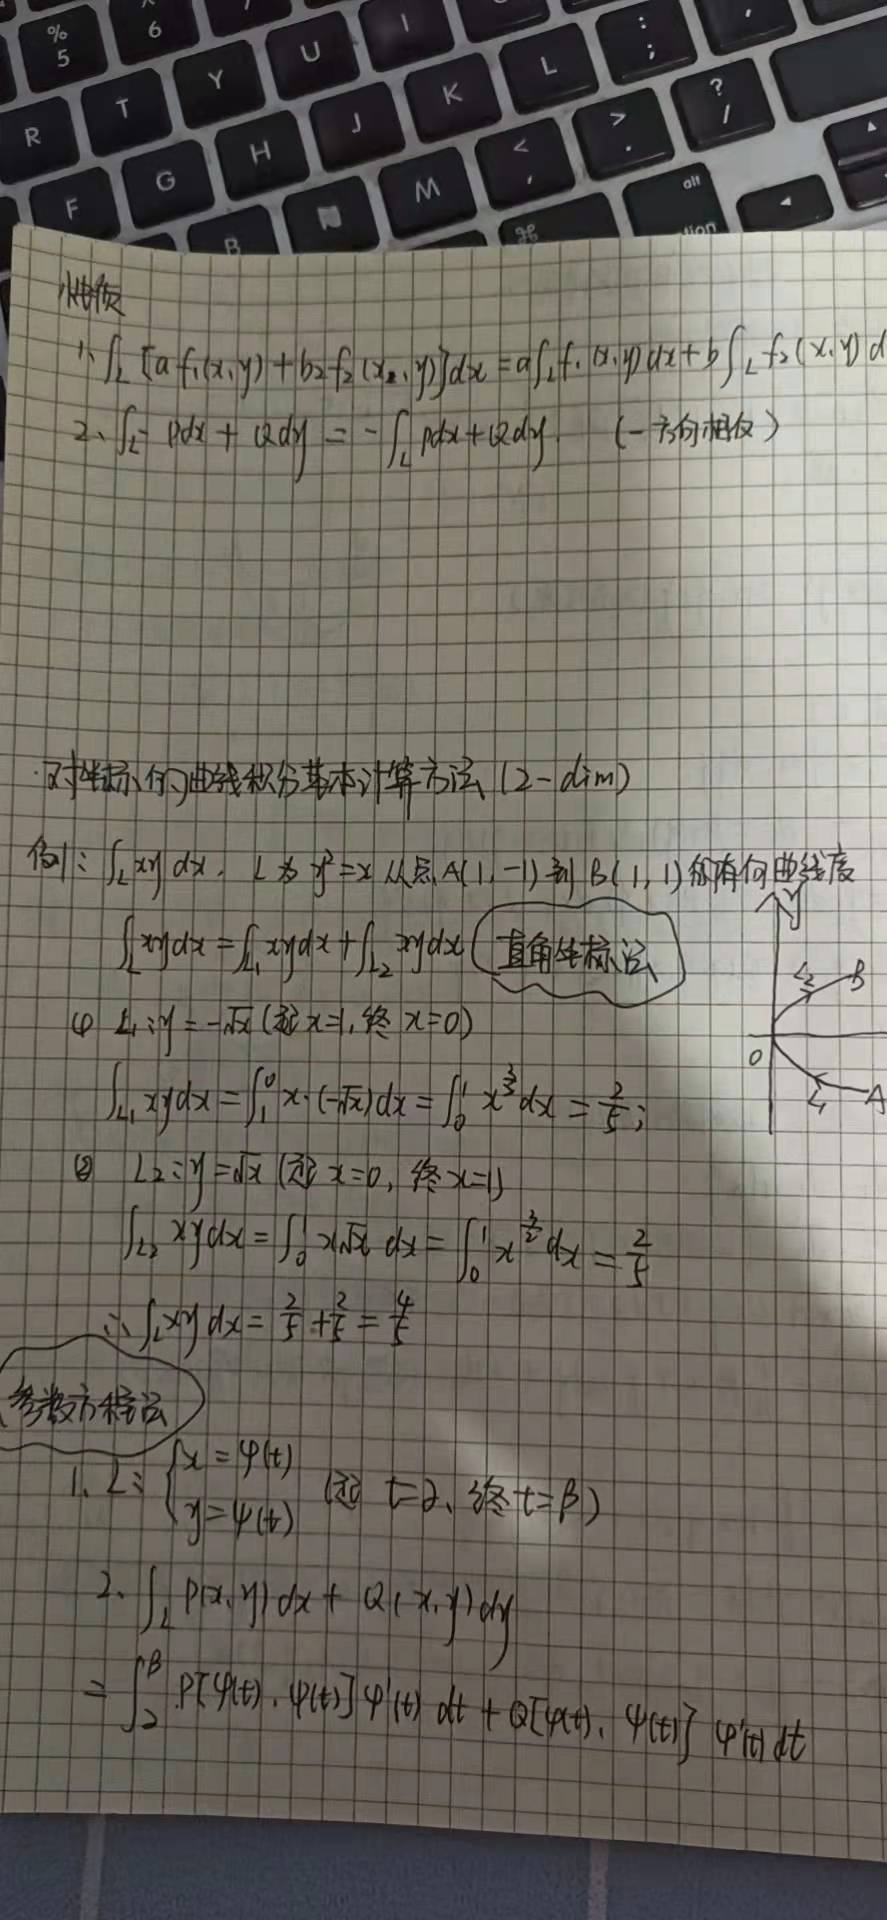 % 5
6
R T Y U I
F G H J K L : ;
B N M < , > . ? /
⌘ alt
tion
性质
1、∫_L [a f₁(x,y) + b₂f₂(x₂,y)]dx = a∫_L f₁(x,y)dx + b∫_L f₂(x,y)d
2、∫_L⁻ Pdx + Qdy = -∫_L Pdx + Qdy. (- 方向相反)
对坐标的曲线积分基本计算方法 (2-dim)
例1: ∫_L xy dx. L为 y²=x 从点A(1,-1)到B(1,1)的有向曲线段
∫_L xydx = ∫_L₁ xydx + ∫_L₂ xydx 直角坐标法
y
L₂ B
O
L₁ A
① L₁: y = -√x (起 x=1, 终 x=0)
∫_L₁ xydx = ∫₁⁰ x·(-√x)dx = ∫₀¹ x^(3/2) dx = 2/5;
② L₂: y = √x (起 x=0, 终 x=1)
∫_L₂ xydx = ∫₀¹ x√x dx = ∫₀¹ x^(3/2) dx = 2/5
∴ ∫_L xy dx = 2/5 + 2/5 = 4/5
参数方程法
1、L: { x = φ(t)
y = ψ(t) (起 t=α、终 t=β)
2、∫_L P(x,y)dx + Q(x,y)dy
= ∫_α^β P[φ(t)、ψ(t)]φ'(t) dt + Q[φ(t)、ψ(t)] ψ'(t) dt